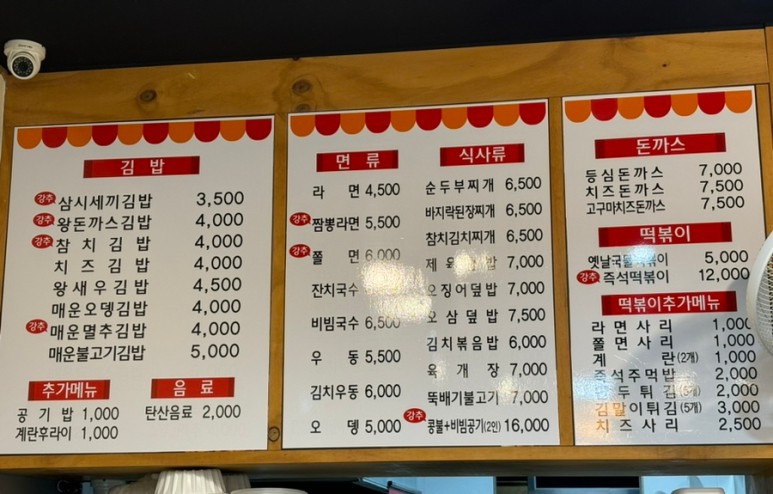 김 밥
강추 삼시세끼김밥 3,500
강추 왕돈까스김밥 4,000
강추 참 치 김 밥 4,000
치 즈 김 밥 4,000
왕 새 우 김 밥 4,500
매운오뎅김밥 4,000
강추 매운멸추김밥 4,000
매운불고기김밥 5,000
추가메뉴
공 기 밥 1,000
계란후라이 1,000
음 료
탄산음료 2,000
면 류
라 면 4,500
강추 짬뽕라면 5,500
강추 쫄 면 6,000
잔치국수
비빔국수 6,500
우 동 5,500
김치우동 6,000
오 뎅 5,000
식사류
순두부찌개 6,500
바지락된장찌개 6,500
참치김치찌개 6,500
제 육 덮 밥 7,000
오 징 어 덮 밥 7,000
오 삼 덮 밥 7,500
김치볶음밥 6,000
육 개 장 7,000
뚝배기불고기 7,000
강추 콩불+비빔공기(2인) 16,000
돈까스
등심돈까스 7,000
치즈돈까스 7,500
고구마치즈돈까스 7,500
떡볶이
옛날국물떡볶이 5,000
강추 즉석떡볶이 12,000
떡볶이추가메뉴
라 면 사 리 1,000
쫄 면 사 리 1,000
계 란(2개) 1,000
즉석주먹밥 2,000
만 두 튀 김 2,000
김말이튀김(5개) 3,000
치 즈 사 리 2,500